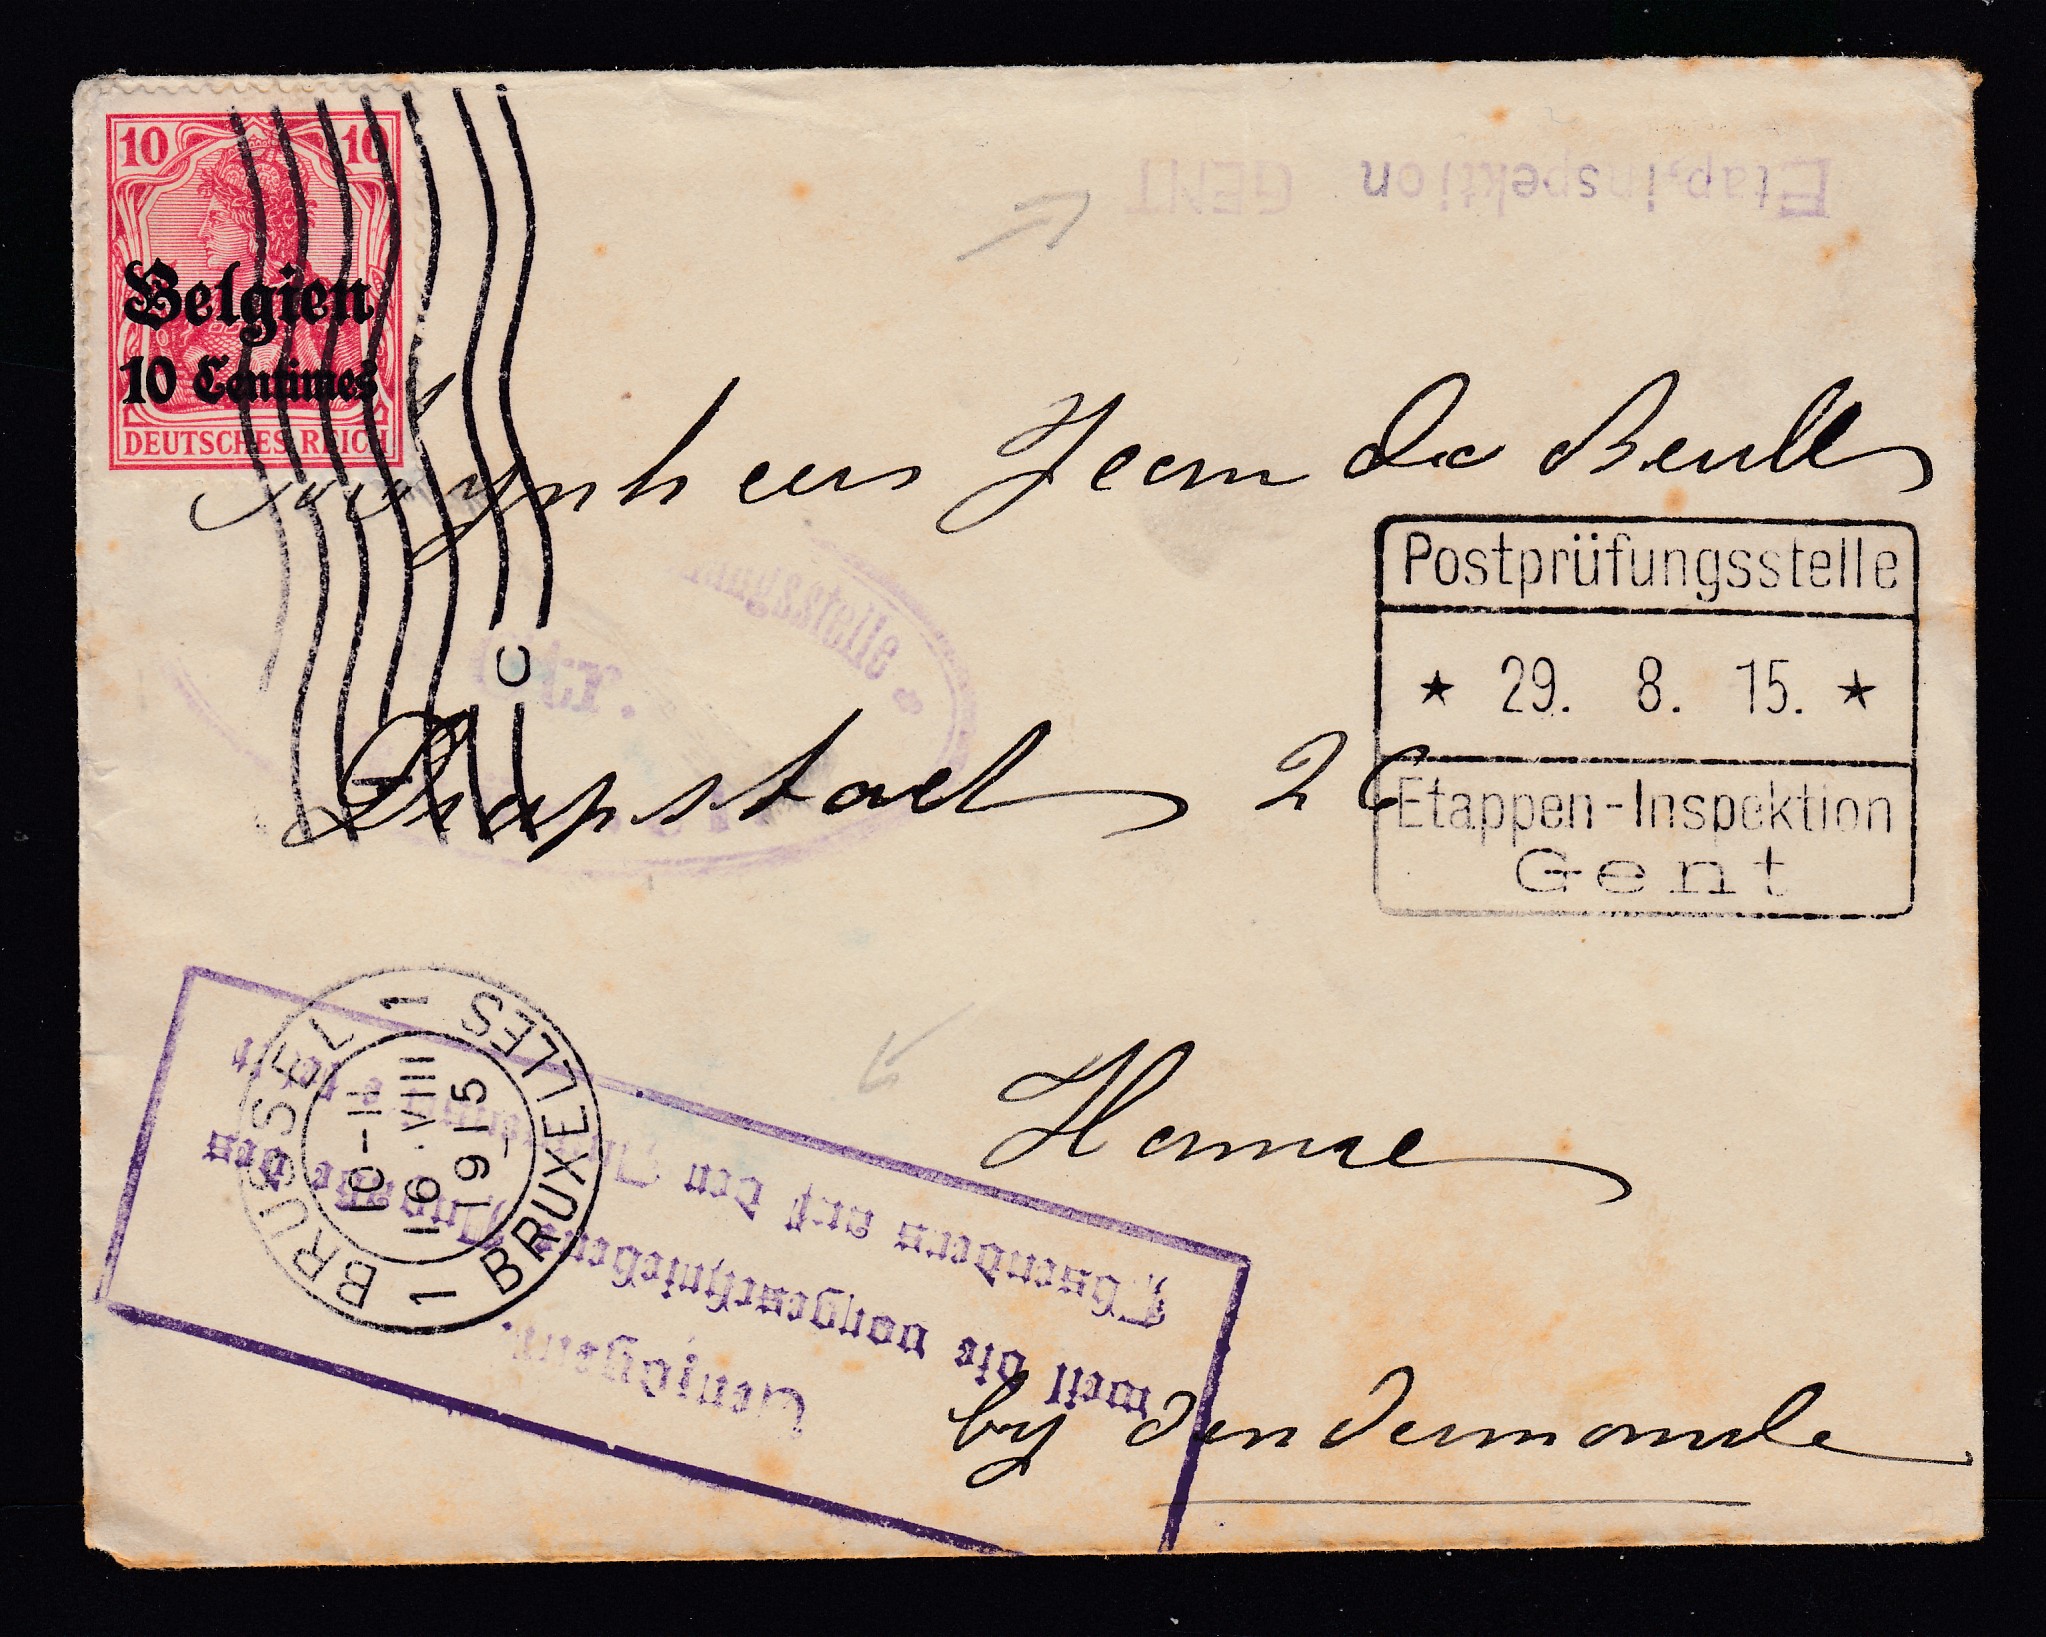 10 10
Belgien
10 Centimes
DEUTSCHES REICH
Etap.Inspektion GENT
Mynheer Jean De Beulle
Postprüfungsstelle
★ 29. 8. 15. ★
Etappen-Inspektion
Gent
ungsstelle
C
26
Hamme
by Dendermonde
BRUSSEL 1
1 BRUXELLES
10-11
16·VIII
1915
weil die vorgeschriebene Angabe des
Absenders auf den